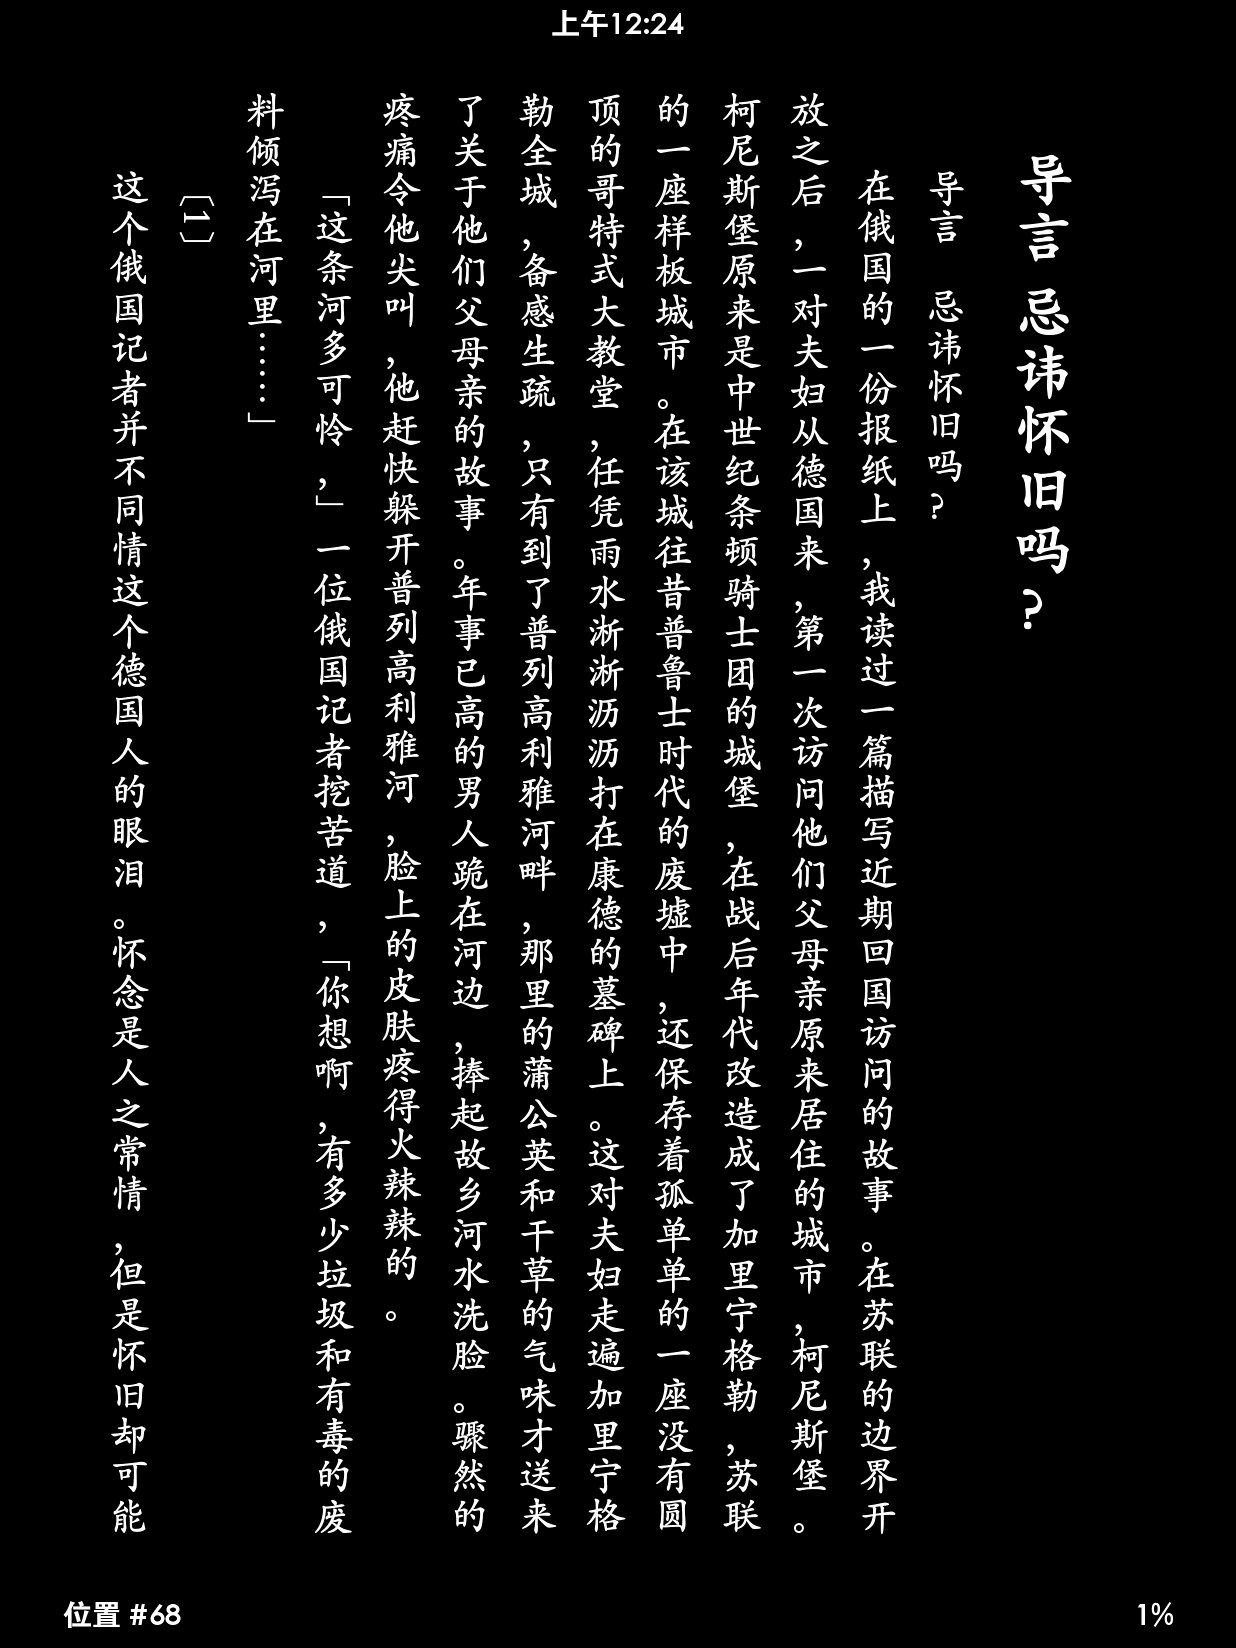 上午12:24
导言 忌讳怀旧吗?
导言 忌讳怀旧吗?
在俄国的一份报纸上,我读过一篇描写近期回国访问的故事。在苏联的边界开
放之后,一对夫妇从德国来,第一次访问他们父母亲原来居住的城市,柯尼斯堡。
柯尼斯堡原来是中世纪条顿骑士团的城堡,在战后年代改造成了加里宁格勒,苏联
的一座样板城市。在该城往昔普鲁士时代的废墟中,还保存着孤单单的一座没有圆
顶的哥特式大教堂,任凭雨水淅淅沥沥打在康德的墓碑上。这对夫妇走遍加里宁格
勒全城,备感生疏,只有到了普列高利雅河畔,那里的蒲公英和干草的气味才送来
了关于他们父母亲的故事。年事已高的男人跪在河边,捧起故乡河水洗脸。骤然的
疼痛令他尖叫,他赶快躲开普列高利雅河,脸上的皮肤疼得火辣辣的。
「这条河多可怜,」一位俄国记者挖苦道,「你想啊,有多少垃圾和有毒的废
料倾泻在河里……」
〔1〕
这个俄国记者并不同情这个德国人的眼泪。怀念是人之常情,但是怀旧却可能
位置 #68
1%